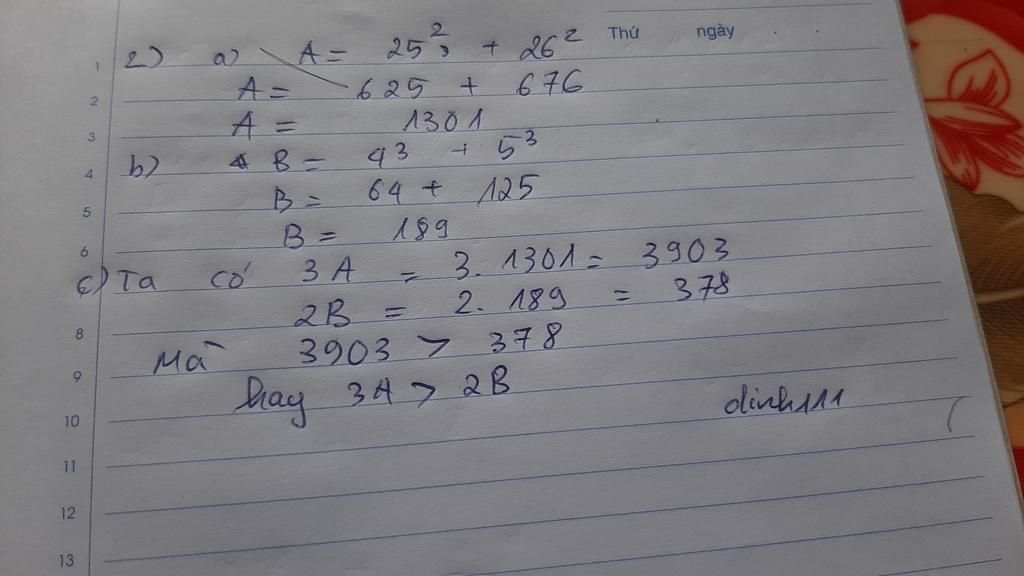 Thứ ngày
1 2) a) A = 25² + 26²
2 A = 625 + 676
3 A = 1301
4 b) B = 4³ + 5³
5 B = 64 + 125
6 B = 189
c) Ta có 3A = 3. 1301 = 3903
8 2B = 2. 189 = 378
9 Mà 3903 > 378
10 hay 3A > 2B dinh111
11
12
13